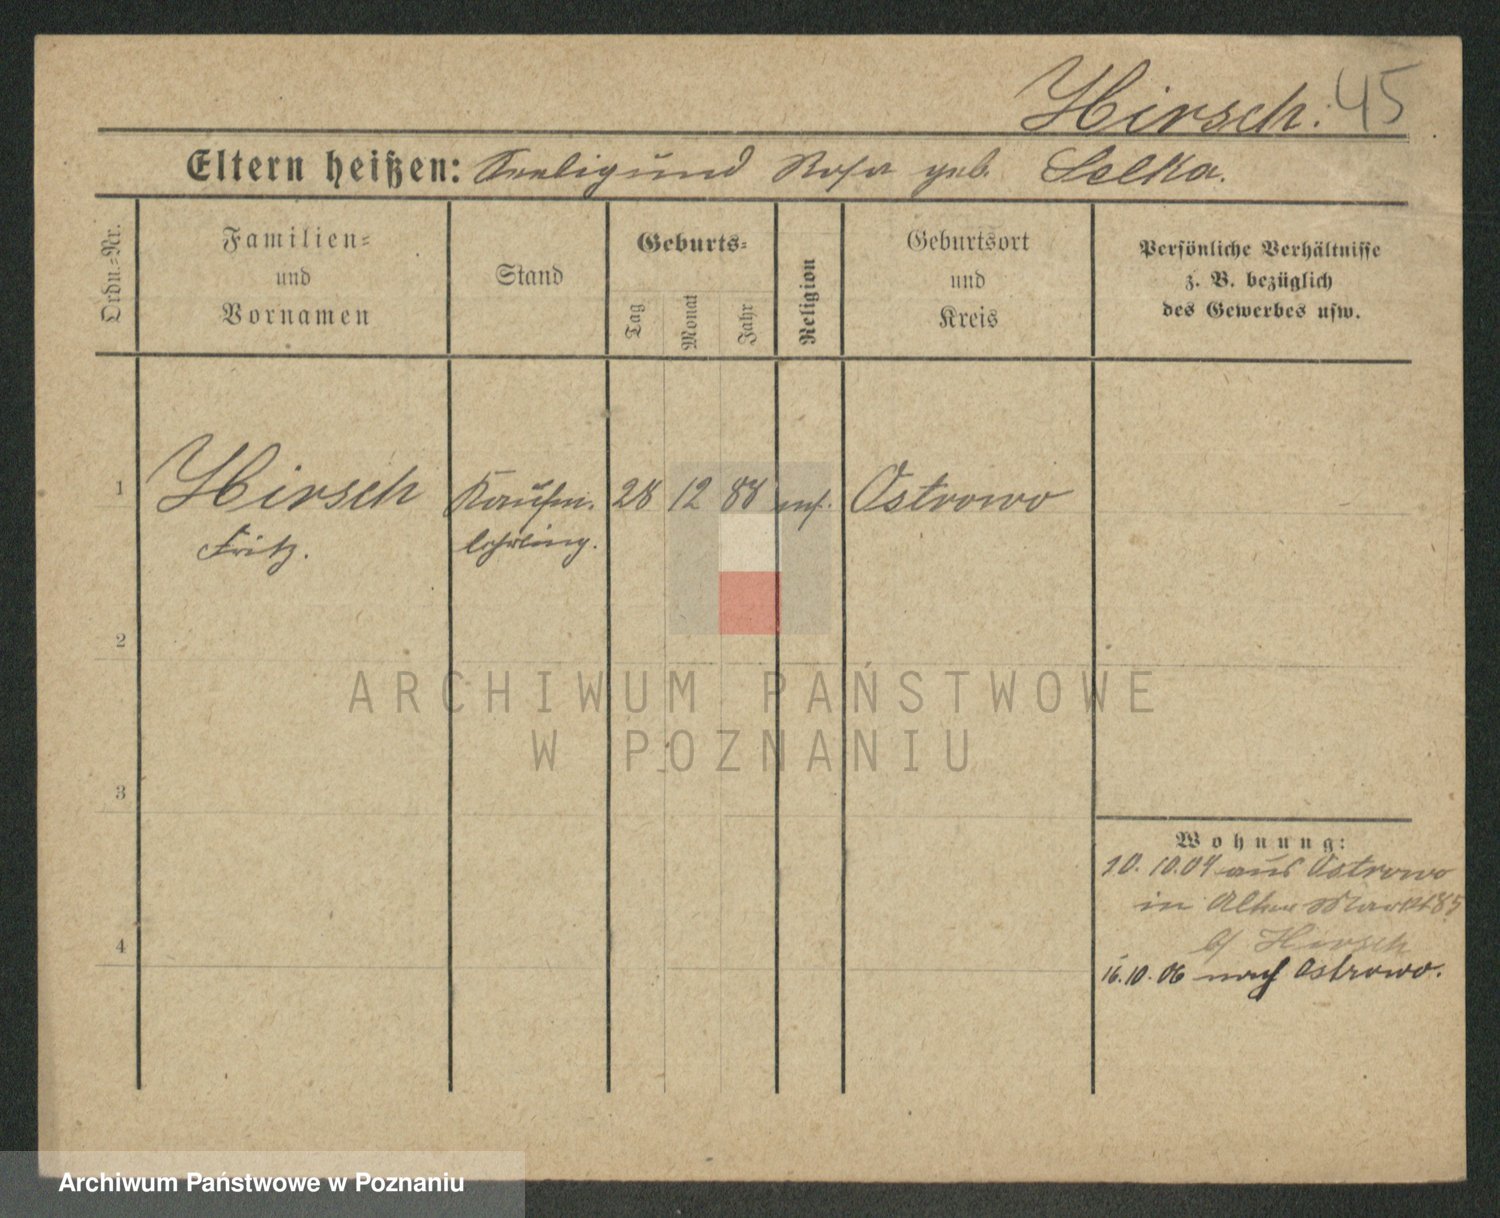 Hirsch. 45
Eltern heißen: Seelig und Rosa geb. Selka.
Ordn.-Nr.
Familien- und Vornamen
Stand
Geburts-
Tag
Monat
Jahr
Religion
Geburtsort und Kreis
Persönliche Verhältnisse
z. B. bezüglich
des Gewerbes usw.
1 Hirsch Kaufm. 28 12 88 mos. Ostrowo
Fritz. lehrling.
2
ARCHIWUM PAŃSTWOWE
W POZNANIU
3
Wohnung:
10.04 aus Ostrowo
in Alter Markt 85
b/ Hirsch
4
16.10.06 nach Ostrowo.
Archiwum Państwowe w Poznaniu